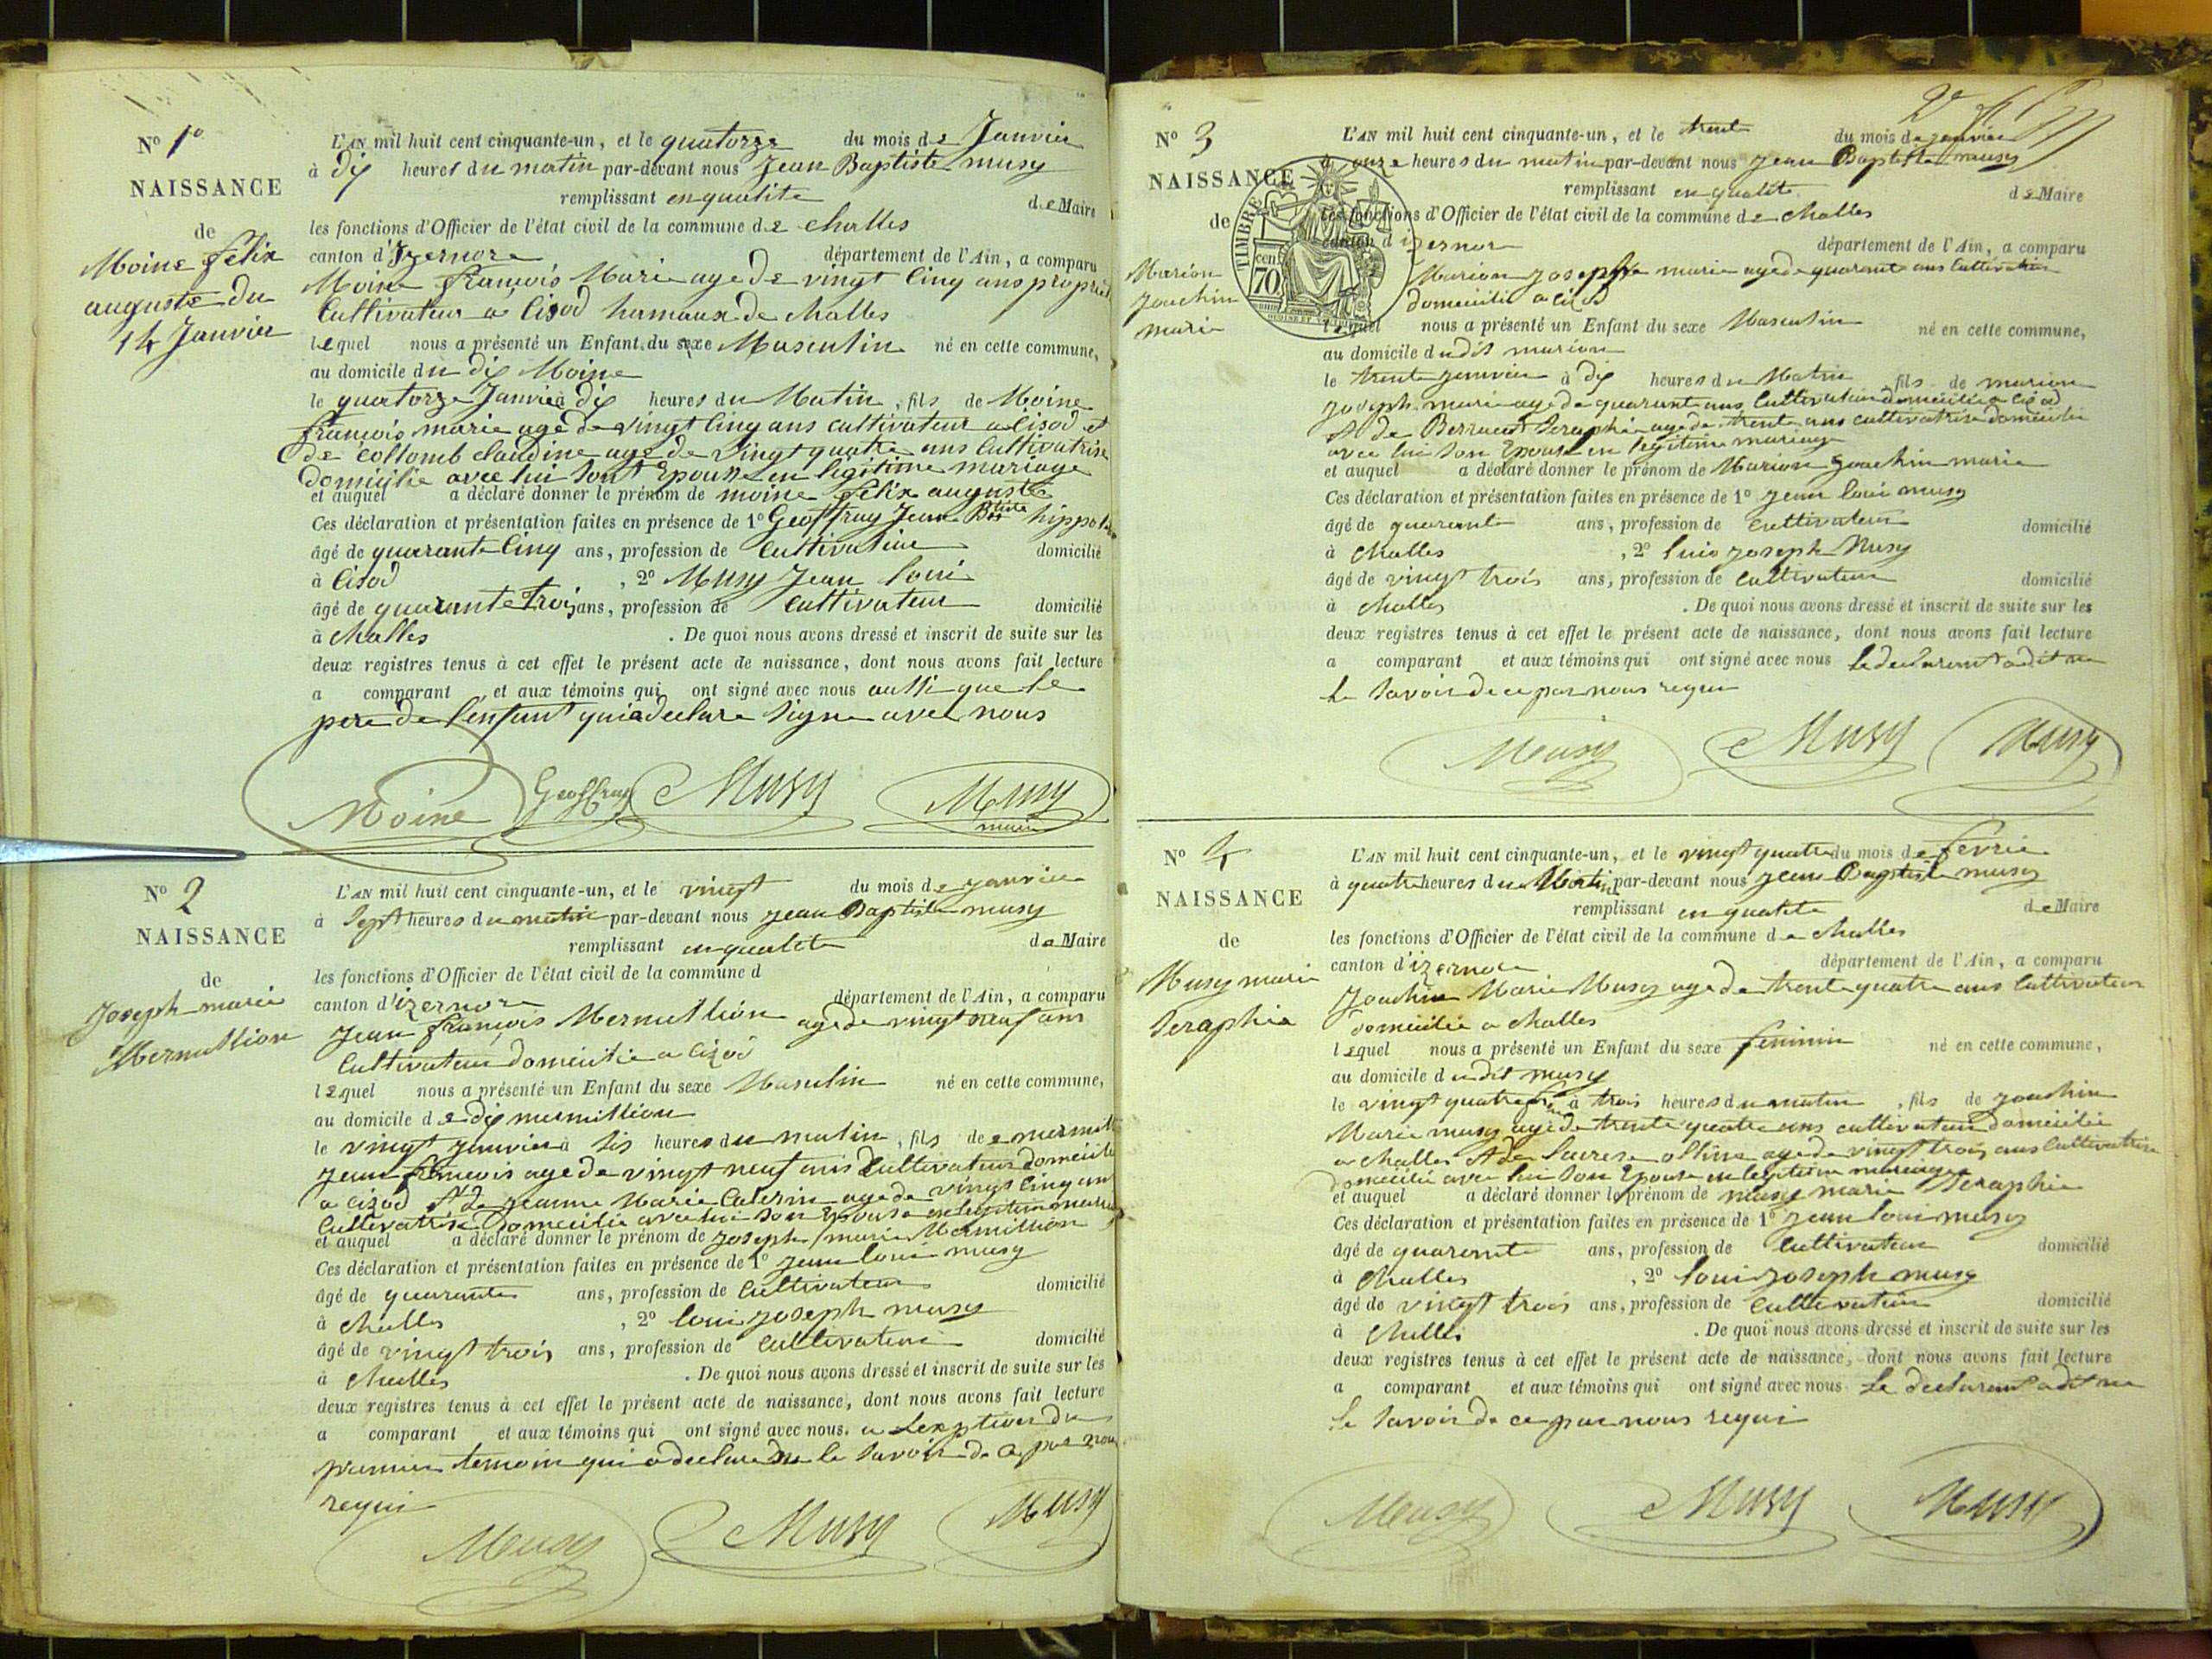 N° 1°
NAISSANCE
de
Moine felix
auguste du
14 Janvier
L'AN mil huit cent cinquante-un, et le quatorze du mois de Janvier
à dix heures du matin par-devant nous Jean Baptiste musy
remplissant en qualite de Maire
les fonctions d'Officier de l'état civil de la commune de challes
canton d'Izernore département de l'Ain, a comparu
Moine françois Marie age de vingt cinq ans propriet
Cultivateur a Cisod hamaux de challes
lequel nous a présenté un Enfant du sexe Masculin né en cette commune,
au domicile du dis Moine
le quatorze Janvier à dix heures du Matin, fils de Moine
françois marie age de vingt cinq ans cultivateur a Cisod et
de Collomb claudine age de vingt quatre ans Cultivatrise
domicilie avec lui sont Epouse en legitime mariage
et auquel a déclaré donner le prénom de moine felix auguste
Ces déclaration et présentation faites en présence de 1° Geoffray Jean Btiste hippolite
âgé de quarante cinq ans, profession de cultivateur domicilié
à Cisod, 2° Musy Jean Loui
âgé de quarante trois ans, profession de cultivateur domicilié
à challes. De quoi nous avons dressé et inscrit de suite sur les
deux registres tenus à cet effet le présent acte de naissance, dont nous avons fait lecture
a comparant et aux témoins qui ont signé avec nous aussi que le
pere de l'enfant qui a declare signe avec nous
Moine Geoffray Musy Musy
maire
N° 2
NAISSANCE
de
Joseph marie
Mermillion
L'AN mil huit cent cinquante-un, et le vingt du mois de janvier
à sept heures du matin par-devant nous jean Baptiste musy
remplissant en qualite de Maire
les fonctions d'Officier de l'état civil de la commune d
canton d'izernore département de l'Ain, a comparu
Jean françois Mermillion age de vingt neuf ans
Cultivateur domicilie a Cizod
lequel nous a présenté un Enfant du sexe Masculin né en cette commune,
au domicile de dis mermillion
le vingt janvier à sis heures du matin, fils de mermill
jean francois age de vingt neuf ans Cultivateur domicilie
a cizod et de jeanne Marie Caterin age de vingt cinq ans
Cultivatrise Domicilie avec lui son Epouse en legitime mariage
et auquel a déclaré donner le prénom de joseph marie Mermillion
Ces déclaration et présentation faites en présence de 1° jean loui musy
âgé de quarante ans, profession de Cultivateur domicilié
à challes, 2° loui joseph musy
âgé de vingt trois ans, profession de Cultivateur domicilié
à challes. De quoi nous avons dressé et inscrit de suite sur les
deux registres tenus à cet effet le présent acte de naissance, dont nous avons fait lecture
a comparant et aux témoins qui ont signé avec nous. a Lexption du
premier temoin qui a declare ne le savoir de ce par nous
requi
Musy Musy Musy
N° 3
NAISSANCE
de
Marion
joachin
marie
TIMBRE
70
cent
L'AN mil huit cent cinquante-un, et le trente du mois de janvier
à onze heures du matin par-devant nous jean Baptiste musy
remplissant en qualite de Maire
les fonctions d'Officier de l'état civil de la commune de challes
canton d'izernore département de l'Ain, a comparu
Marion joseph marie age de quarante ans Cultivateur
domicilie a cizod
lequel nous a présenté un Enfant du sexe Masculin né en cette commune,
au domicile dudit marion
le trente janvier à dix heures du Matin, fils de marion
joseph marie age de quarante ans Cultivateur domicilie a cizod
et de Seraphie age de trente ans cultivatrise domicilie
avec lui son Epouse en legitime mariage
et auquel a déclaré donner le prénom de Marion joachin marie
Ces déclaration et présentation faites en présence de 1° jean loui musy
âgé de quarante ans, profession de cultivateur domicilié
à challes, 2° luis joseph Musy
âgé de vingt trois ans, profession de cultivateur domicilié
à challes. De quoi nous avons dressé et inscrit de suite sur les
deux registres tenus à cet effet le présent acte de naissance, dont nous avons fait lecture
a comparant et aux témoins qui ont signé avec nous le declarant a dit ne
le savoir de ce par nous requi
Musy Musy Musy
N° 4
NAISSANCE
de
Musy marie
Seraphie
L'AN mil huit cent cinquante-un, et le vingt quatre du mois de fevrie
à quatre heures du Matin par-devant nous jean Baptiste musy
remplissant en qualite de Maire
les fonctions d'Officier de l'état civil de la commune de challes
canton d'izernore département de l'Ain, a comparu
Joachin Marie Musy age de trente quatre ans Cultivateur
domicilie a challes
lequel nous a présenté un Enfant du sexe feminin né en cette commune,
au domicile dudit musy
le vingt quatre à trois heures du matin, fils de joachin
Marie musy age de trente quatre ans cultivateur domicilie
a challes et de age de vingt trois ans Cultivatrise
domicilie avec lui son Epouse en legitime mariage
et auquel a déclaré donner le prénom de musy marie Seraphie
Ces déclaration et présentation faites en présence de 1° jean loui musy
âgé de quarente ans, profession de Cultivateur domicilié
à challes, 2° loui joseph musy
âgé de vingt trois ans, profession de Cultivateur domicilié
à challes. De quoi nous avons dressé et inscrit de suite sur les
deux registres tenus à cet effet le présent acte de naissance, dont nous avons fait lecture
a comparant et aux témoins qui ont signé avec nous le declarent a dit ne
le savoir de ce par nous requi
Musy Musy Musy